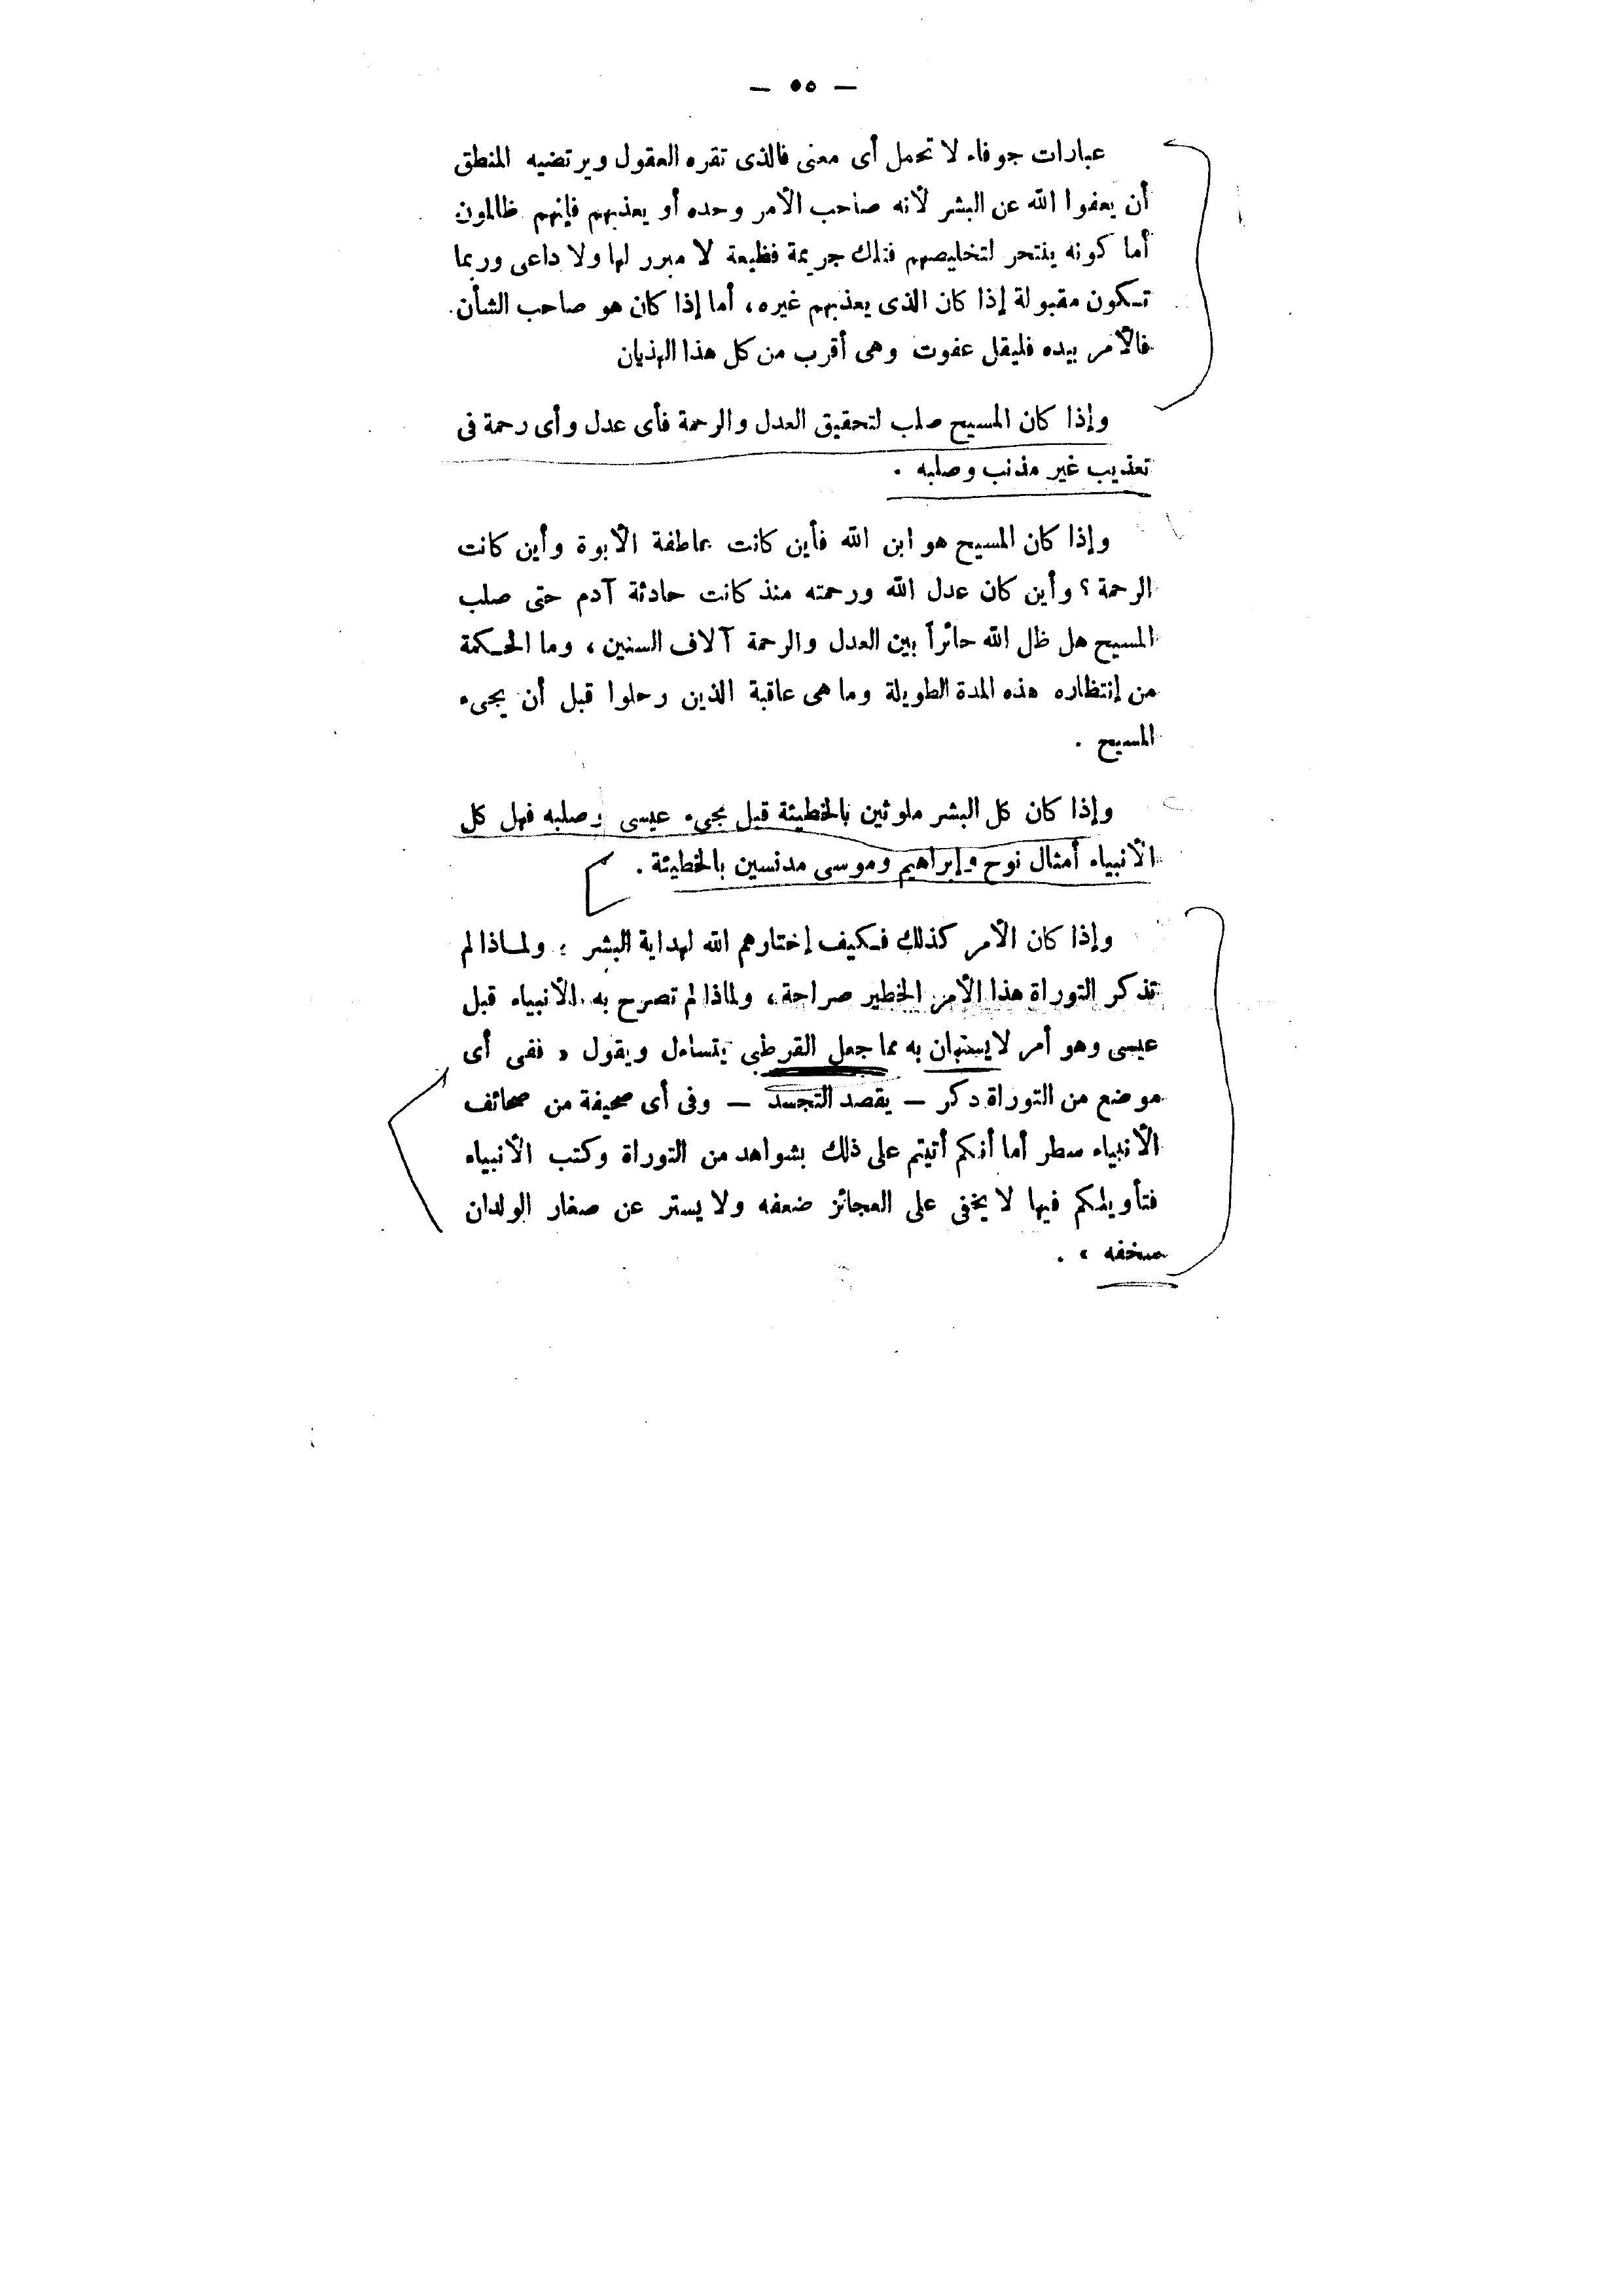 — ٥٥ —
عبارات جوفاء لا تحمل أى معنى فالذى تقره العقول ويرتضيه المنطق
أن يعفوا الله عن البشر لأنه صاحب الأمر وحده أو يعذبهم فإنهم ظالمون
أما كونه ينتحر لتخليصهم فتلك جريمة فظيعة لا مبرر لها ولا داعى وربما
تكون مقبولة إذا كان الذى يعذبهم غيره، أما إذا كان هو صاحب الشأن
فالأمر بيده فليقل عفوت وهى أقرب من كل هذا الهذيان
وإذا كان المسيح صلب لتحقيق العدل والرحمة فأى عدل وأى رحمة فى
تعذيب غير مذنب وصلبه .
وإذا كان المسيح هو ابن الله فأين كانت عاطفة الأبوة وأين كانت
الرحمة ؟ وأين كان عدل الله ورحمته منذ كانت حادثة آدم حتى صلب
المسيح هل ظل الله حائراً بين العدل والرحمة آلاف السنين ، وما الحكمة
من إنتظاره هذه المدة الطويلة وما هى عاقبة الذين رحلوا قبل أن يجىء
المسيح .
وإذا كان كل البشر ملوثين بالخطيئة قبل مجىء عيسى وصلبه فهل كل
الأنبياء أمثال نوح وإبراهيم وموسى مدنسين بالخطيئة .
وإذا كان الأمر كذلك فكيف إختارهم الله لهداية البشر ؛ ولماذا لم
تذكر التوراة هذا الأمر الخطير صراحة، ولماذا لم تصرح به الأنبياء قبل
عيسى وهو أمر لا يستهان به مما جعل القرطبى يتساءل ويقول « ففى أى
موضع من التوراة ذكر — يقصد التجسد — وفى أى صحيفة من صحائف
الأنبياء سطر أما أنكم أتيتم على ذلك بشواهد من التوراة وكتب الأنبياء
فتأويلكم فيها لا يخفى على العجائز ضعفه ولا يستر عن صغار الولدان
سخفه » .